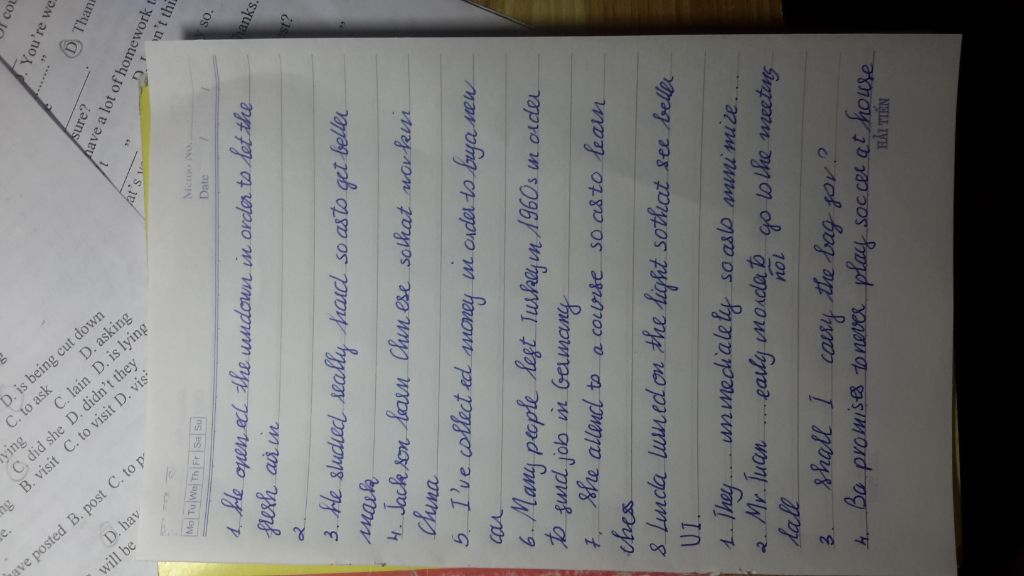 Memo No.
Date / /
Mo Tu We Th Fr Sa Su
1. He opened the window in order to let the
fresh air in
2
3. He studied really hard so as to get better
mark
4. Jackson learn Chinese so that work in
China
5 I've collected money in order to buy a new
car
6. Many people left Turkey in 1960s in order
to find job in Germany
7. She attend to a course so as to learn
chess
8 Linda turned on the light so that see better
VI.
1. They .... immediately so as to minimize....
2. Mr Tuan .... early in order to go to the meeting
not
late
3. Shall I carry the bag for?
4. Ba promises to never play soccer at house
HẢI TIẾN
D. is being cut down
C. to ask D. asking
C. lain D. is lying
C. did she D. didn't they
B. visit C. to visit D. visi
have posted B. post C. to p
D. hav
will be
You're we
D Than
sure?
have a lot of homework t